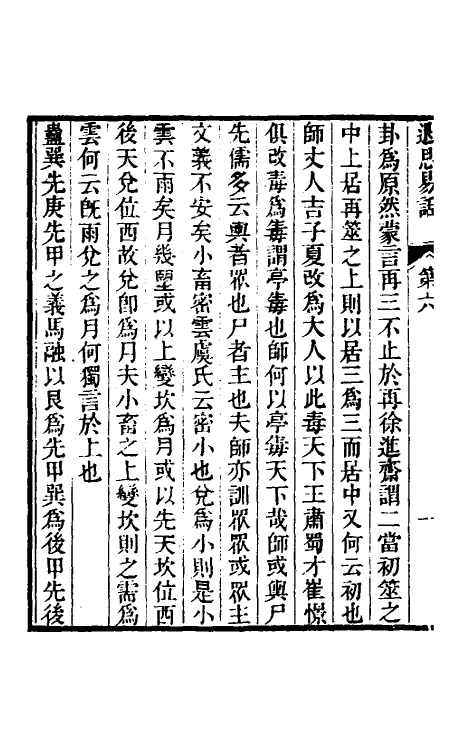 退思易話 第六 一
卦爲原然蒙言再三不止於再徐進齋謂二當初筮之
中上居再筮之上則以居三爲三而居中又何云初也
師丈人吉子夏改爲大人以此毒天下王肅蜀才崔憬
俱改毒爲毐謂亭毐也師何以亭毐天下哉師或輿尸
先儒多云輿者眾也尸者主也夫師亦訓眾眾或眾主
文義不安矣小畜密雲虞氏云密小也兌爲小則是小
雲不雨矣月幾朢或以上變坎爲月或以先天坎位西
後天兌位西故兌卽爲月夫小畜之上變坎則之需爲
雲何云旣雨兌之爲月何獨言於上也
蠱巽先庚先甲之義馬融以艮爲先甲巽爲後甲先後